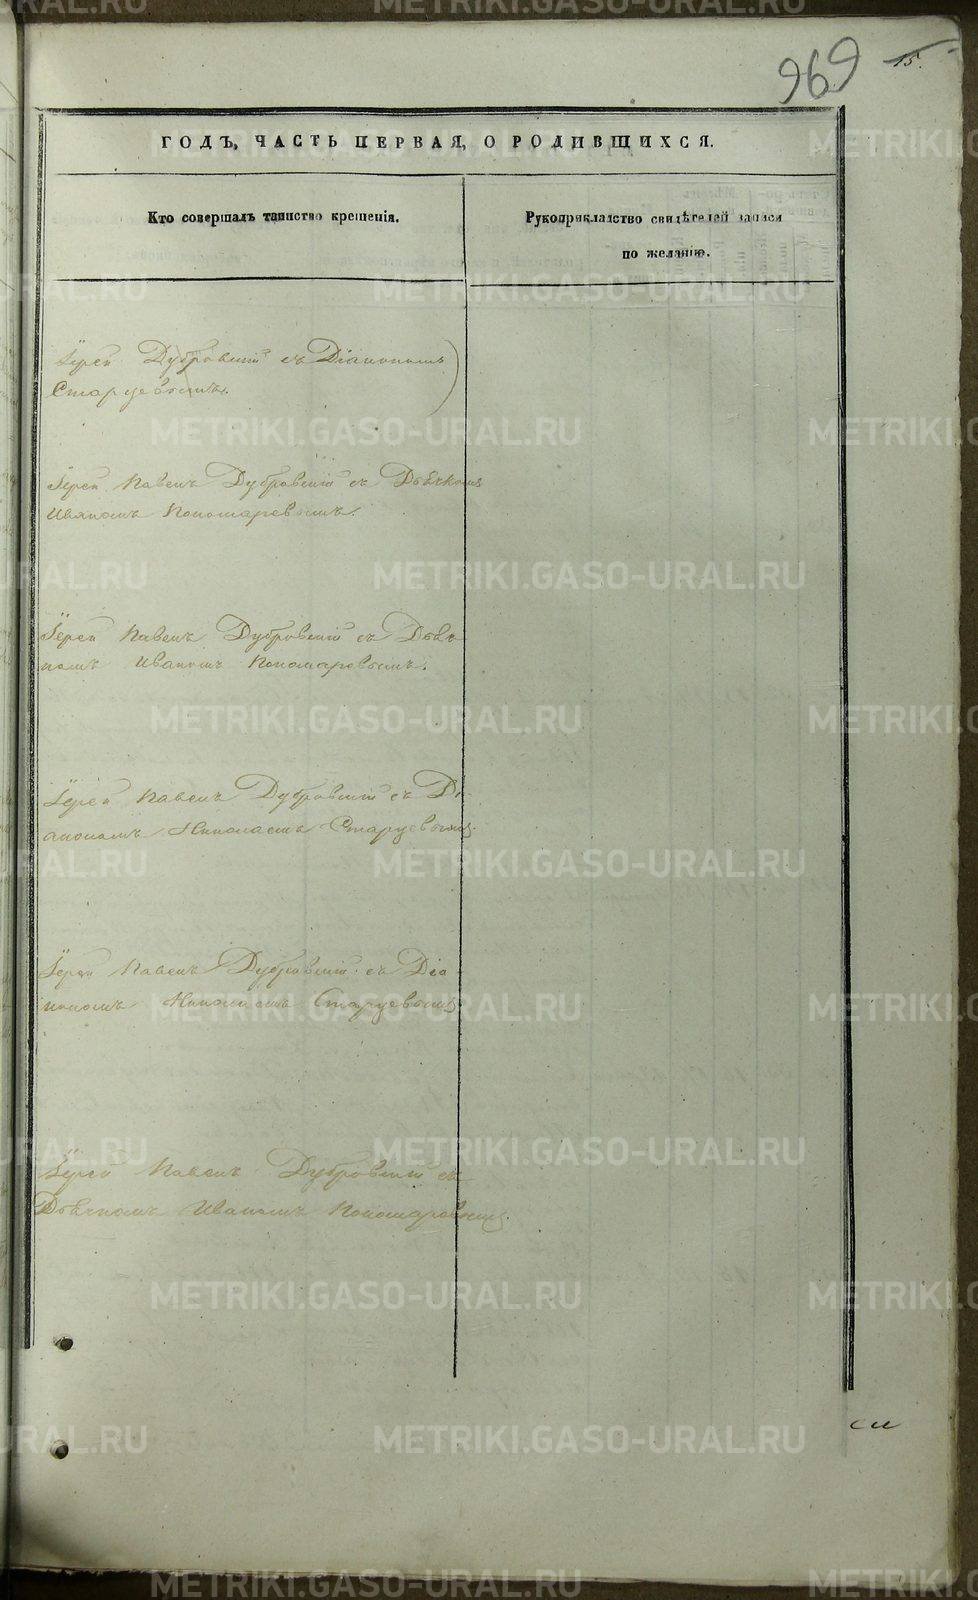 969 15.
ГОДЪ, ЧАСТЬ ПЕРВАЯ, О РОДИВШИХСЯ.
Кто совершалъ таинство крещенія.
Рукоприкладство свидѣтелей записи
по желанію.
Іерей Дубровскій съ Діакономъ
Старцевымъ.
Іерей Павелъ Дубровскій съ Дьячкомъ
Иваномъ Пономаревымъ.
Іерей Павелъ Дубровскій съ Дьяч-
комъ Иваномъ Пономаревымъ.
Іерей Павелъ Дубровскій съ Ді-
акономъ Николаемъ Старцевымъ
Іерей Павелъ Дубровскій съ Діа
кономъ Николаемъ Старцевымъ
Іерей Павелъ Дубровскій съ
Дьячкомъ Иваномъ Пономаревымъ.
METRIKI.GASO-URAL.RU